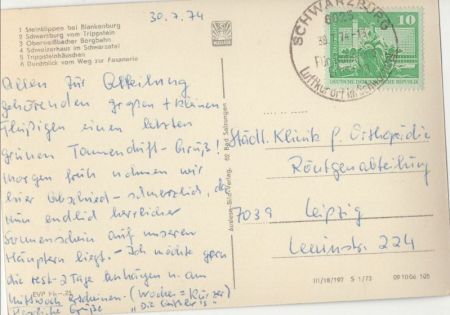 30.7.74
1 Steinklippen bei Blankenburg
2 Schwarzburg vom Trippstein
3 Oberweißbacher Bergbahn
4 Schweizerhaus im Schwarzatal
5 Trippsteinhäuschen
6 Durchblick vom Weg zur Fasanerie
Allen zur Abteilung
gehörenden großen + kleinen
Fleißigen einen letzten
grünen Tannenduft-Gruß!
Morgen früh nehmen wir
hier Abschied - schmerzlich, da
nun endlich herrlicher
Sonnenschein auf unseren
Häuptern liegt. - Ich möchte gern
die rest. 2 Tage anhängen u. am
Mittwoch erscheinen. (Woche = kürzer)
Herzliche Grüße
EVP
Auslese-Bild-Verlag, 60 Bad Salzungen
SCHWARZBURG
Luftkurort im
10
DEUTSCHE DEMOKRATISCHE REPUBLIK
Städt. Klinik f. Orthopädie
Röntgenabteilung
7039 Leipzig
Leninstr. 224
III/18/197 S 1/73
09 10 06 105